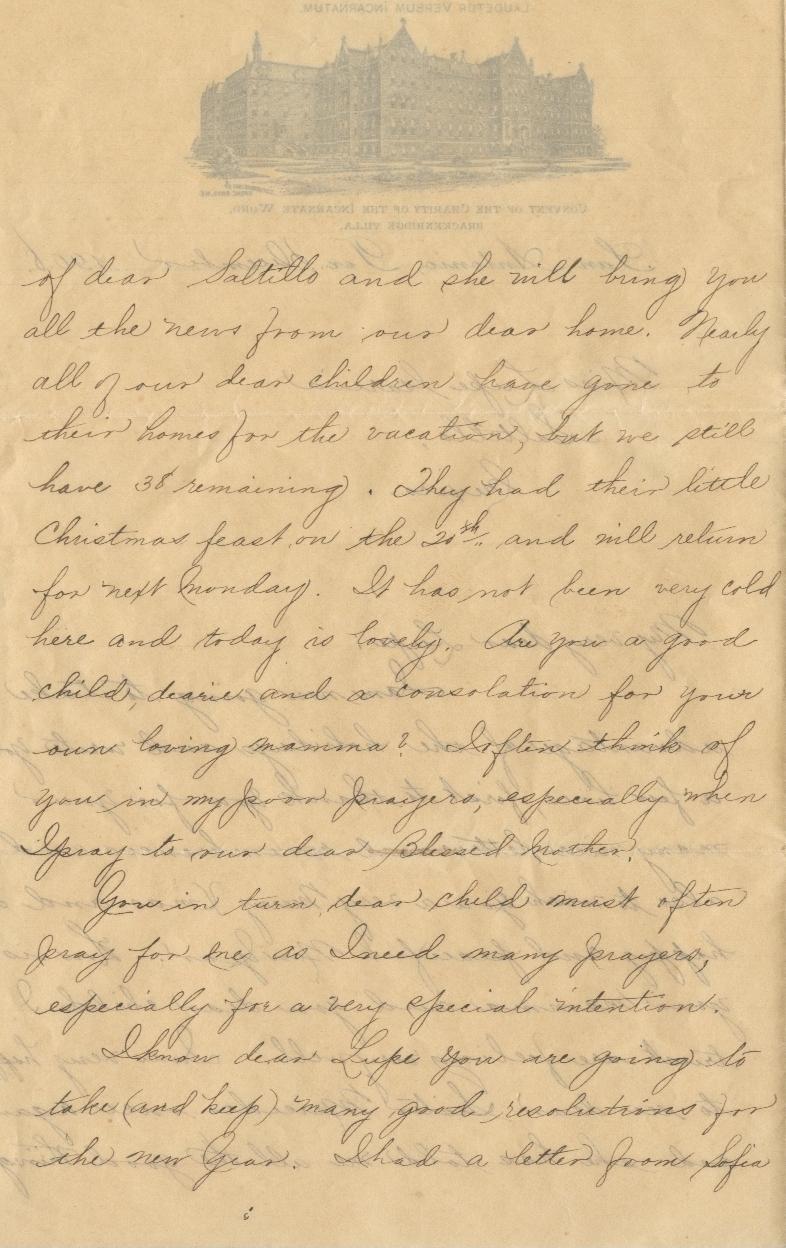 LAUDETUR VERBUM INCARNATUM.
CONVENT OF THE CHARITY OF THE INCARNATE WORD,
BRACKENRIDGE VILLA.
of dear Saltillo and she will bring you
all the news from our dear home. Nearly
all of our dear children have gone to
their homes for the vacation, but we still
have 38 remaining. They had their little
Christmas feast on the 20th. and will return
for next Monday. It has not been very cold
here and today is lovely. Are you a good
child, dearie and a consolation for your
own loving mamma? I often think of
you in my poor prayers, especially when
I pray to our dear Blessed Mother.
You in turn dear child must often
pray for me as I need many prayers,
especially for a very special intention.
I know dear Lupe you are going to
take (and keep) many good resolutions for
the new Year. I had a letter from Sofia